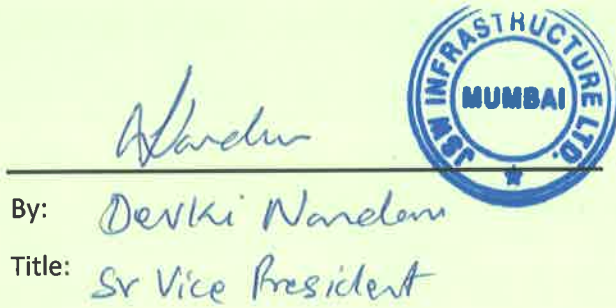 JSW INFRASTRUCTURE LTD.
MUMBAI
By: Devki Nandan
Title: Sr Vice President